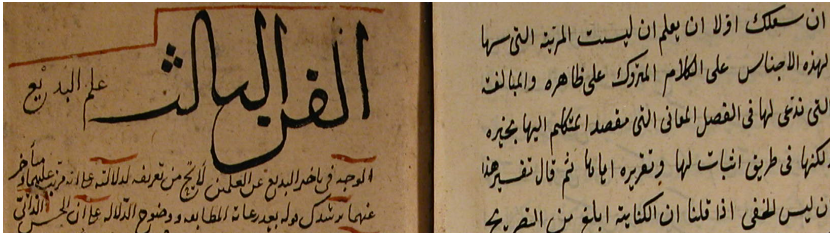 ان سعلك اولا ان يعلم ان ليست المرتبة التى
لهذه الاجناس على الكلام المتروك على ظاهره والمبالغة
التى تدعى لها فى الفصل المعانى التى مقصد المتكلم اليها بخبره
لكنها فى طريق اثبات لها وتقريره اياها ثم قال تفسير هذا
ان ليس المخفى اذا قلنا ان الكناية ابلغ من التصريح
الفن الثالث
علم البديع
الوجه فى تاخر البديع عن العلمين لايح من تعريفه لدلالته على انه مرتب عليهما ومتأخر
عنهما يرشدك قوله بعد رعاية المطابقة ووضوح الدلالة على ان الحسن الذاتى